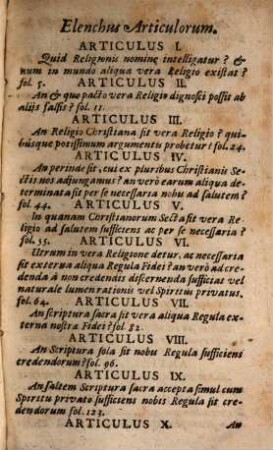 Elenchus Articulorum.
ARTICULUS I.
Quid Religionis nomine intelligatur? &
num in mundo aliqua vera Religio existat?
fol. 5.
ARTICULUS II.
An & quo pacto vera Religio dignosci possit ab
aliis falsis? fol. 11.
ARTICULUS III.
An Religio Christiana sit vera Religio? qui-
busque potissimum argumentis probetur? fol. 24.
ARTICULUS IV.
An perinde sit, cui ex pluribus Christianis Se-
ctis nos adjungamus? an verò earum aliqua de-
terminata sit per se necessaria nobis ad salutem?
fol. 44.
ARTICULUS V.
In quanam Christianorum Secta sit vera Re-
ligio ad salutem sufficiens ac per se necessaria?
fol. 55.
ARTICULUS VI.
Utrum in vera Religione detur, ac necessaria
sit externa aliqua Regula Fidei? an verò ad cre-
denda à non credendis discernenda sufficiat vel
naturale lumen rationis vel Spiritus privatus.
fol. 64.
ARTICULUS VII.
An scriptura sacra sit vera aliqua Regula ex-
terna nostræ Fidei? fol 82.
ARTICULUS VIII.
An Scriptura sola sit nobis Regula sufficiens
credendorum? fol. 96.
ARTICULUS IX.
An saltem Scriptura sacra accepta simul cum
Spiritu privato sufficiens nobis Regula sit cre-
dendorum fol. 123.
ARTICULUS X. An